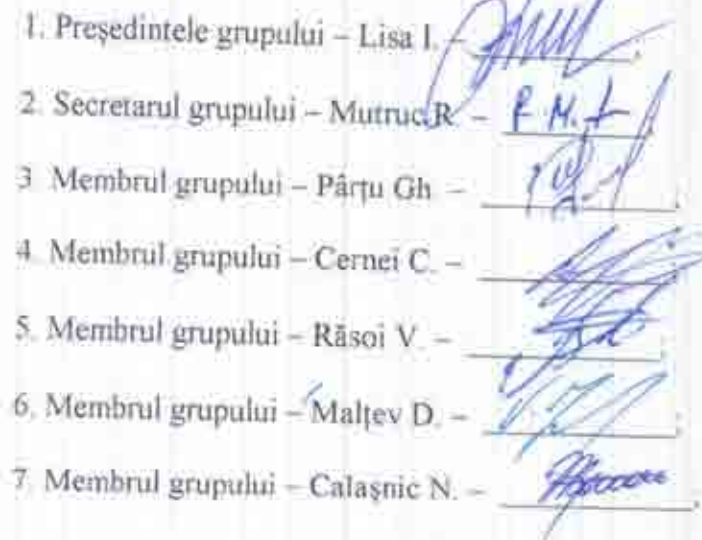 1. Președintele grupului – Lisa I. –
2. Secretarul grupului – Mutruc R. – R. M.
3 Membrul grupului – Pârțu Gh –
4. Membrul grupului – Cernei C. –
5. Membrul grupului – Răsoi V. –
6. Membrul grupului – Malțev D. –
7. Membrul grupului – Calașnic N. –